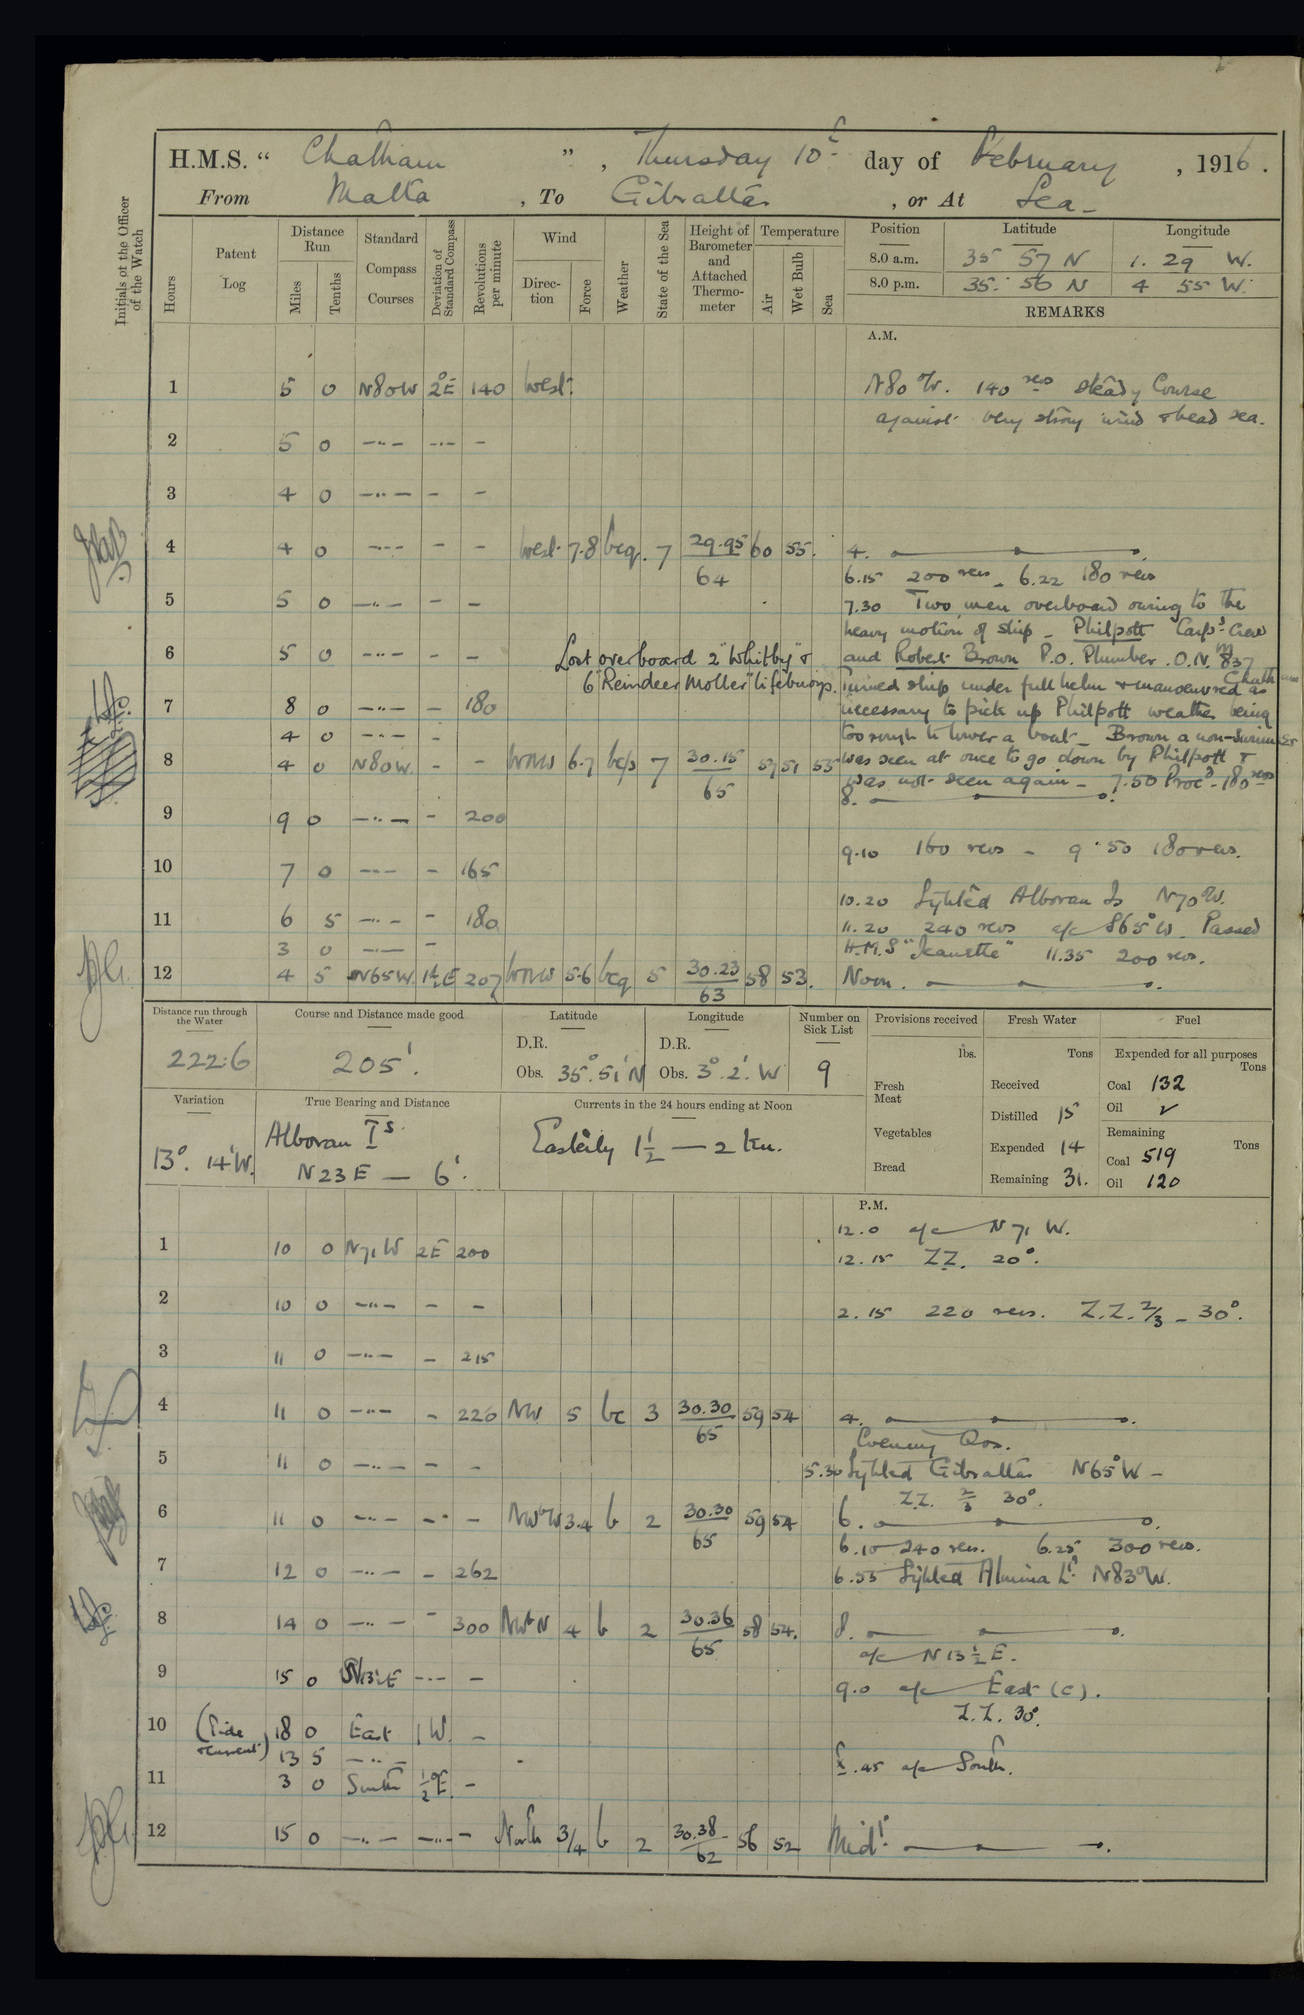 H.M.S. "Chatham", Thursday 10th day of February, 1916.
From Malta, To Gibraltar, or At Sea
Initials of the Officer of the Watch
Hours
Patent Log
Distance Run
Miles
Tenths
Standard Compass Courses
Deviation of Standard Compass
Revolutions per minute
Wind
Direction
Force
Weather
State of the Sea
Height of Barometer and Attached Thermometer
Temperature
Air
Wet Bulb
Sea
Position Latitude Longitude
8.0 a.m. 35 57 N 1. 29 W.
8.0 p.m. 35. 56 N 4 55 W.
REMARKS
A.M.
1 5 0 N80W 2°E 140 West. N80°W. 140 revs steady Course
against very strong wind & head sea.
2 5 0 —"— —"— —
3 4 0 —"— — —
4 4 0 —"— — — West 7.8 bcq. 7 29.95 60 55. 4.
64
6.15 200 revs — 6.22 180 revs
5 5 0 —"— — — 7.30 Two men overboard owing to the
heavy motion of ship — Philpott Carp's Crew
6 5 0 —"— — — Lost overboard 2 "Whitby" & and Robert Brown P.O. Plumber. O.N. M 837
6 "Reindeer Moller" lifebuoys. Chatham
Turned ship under full helm & manoeuvred as
7 8 0 —"— — 180 necessary to pick up Philpott weather being
4 0 —"— — too rough to lower a boat — Brown a non-swimmer
8 4 0 N80W. — — WNW 6.7 bcp 7 30.15 57 51 55 was seen at once to go down by Philpott &
65
was not seen again — 7.50 Proc'd — 180 revs
8.
9 9 0 —"— — 200
9.10 160 revs — 9.50 180 revs.
10 7 0 —"— — 165
10.20 Sighted Alboran Is N70°W.
11 6 5 —"— — 180 11.20 240 revs a/c S65°W. Passed
3 0 —"— — H.M.S "Jeanette" 11.35 200 revs.
12 4 5 N65W. 1½E 207 WNW 5.6 bcq 5 30.23 58 53. Noon.
63
Distance run through the Water
222.6
Course and Distance made good
205'.
Latitude
D.R.
Obs. 35°. 51' N
Longitude
D.R.
Obs. 3°. 2'. W
Number on Sick List
9
Provisions received
lbs.
Fresh Meat
Vegetables
Bread
Fresh Water
Tons
Received
Distilled 15
Expended 14
Remaining 31.
Fuel
Expended for all purposes
Tons
Coal 132
Oil
Remaining
Tons
Coal 519
Oil 120
Variation
13°. 14'W.
True Bearing and Distance
Alboran Is.
N 23 E — 6'.
Currents in the 24 hours ending at Noon
Easterly 1½ — 2 kn.
P.M.
12.0 a/c N 71 W.
1 10 0 N71W 2E 200 12.15 ZZ. 20°.
2 10 0 —"— — — 2.15 220 revs. Z.Z. 2/3 — 30°.
3 11 0 —"— — 215
4 11 0 —"— — 220 NW 5 bc 3 30.30 59 54 4.
65
Evening Qrs.
5 11 0 —"— — — 5.30 Sighted Gibraltar N65°W —
Z.Z. 2/3 30°.
6 11 0 —"— — — NWbW 3.4 b 2 30.30 59 54 6.
65
6.10 240 revs. 6.25 300 revs.
7 12 0 —"— — 262 6.55 Sighted Almina Lt. N83°W.
8 14 0 —"— — 300 NWbN 4 b 2 30.36 58 54. 8.
65
a/c N 13½ E.
9 15 0 N13½E —"— — 9.0 a/c East (c).
Z.Z. 30°.
10 (Tide & current) 18 0 East 1W. —
13 5 —"— .45 a/c South.
11 3 0 South ½°E. —
12 15 0 —"— —"— — North 3/4 b 2 30.38 56 52 Midt.
62